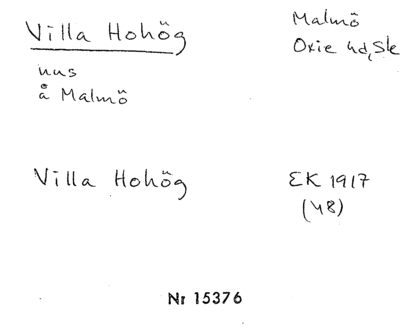 Villa Hohög
Malmö
Oxie hd, Sk
hus
å Malmö
Villa Hohög
EK 1917
(48)
Nr 15376